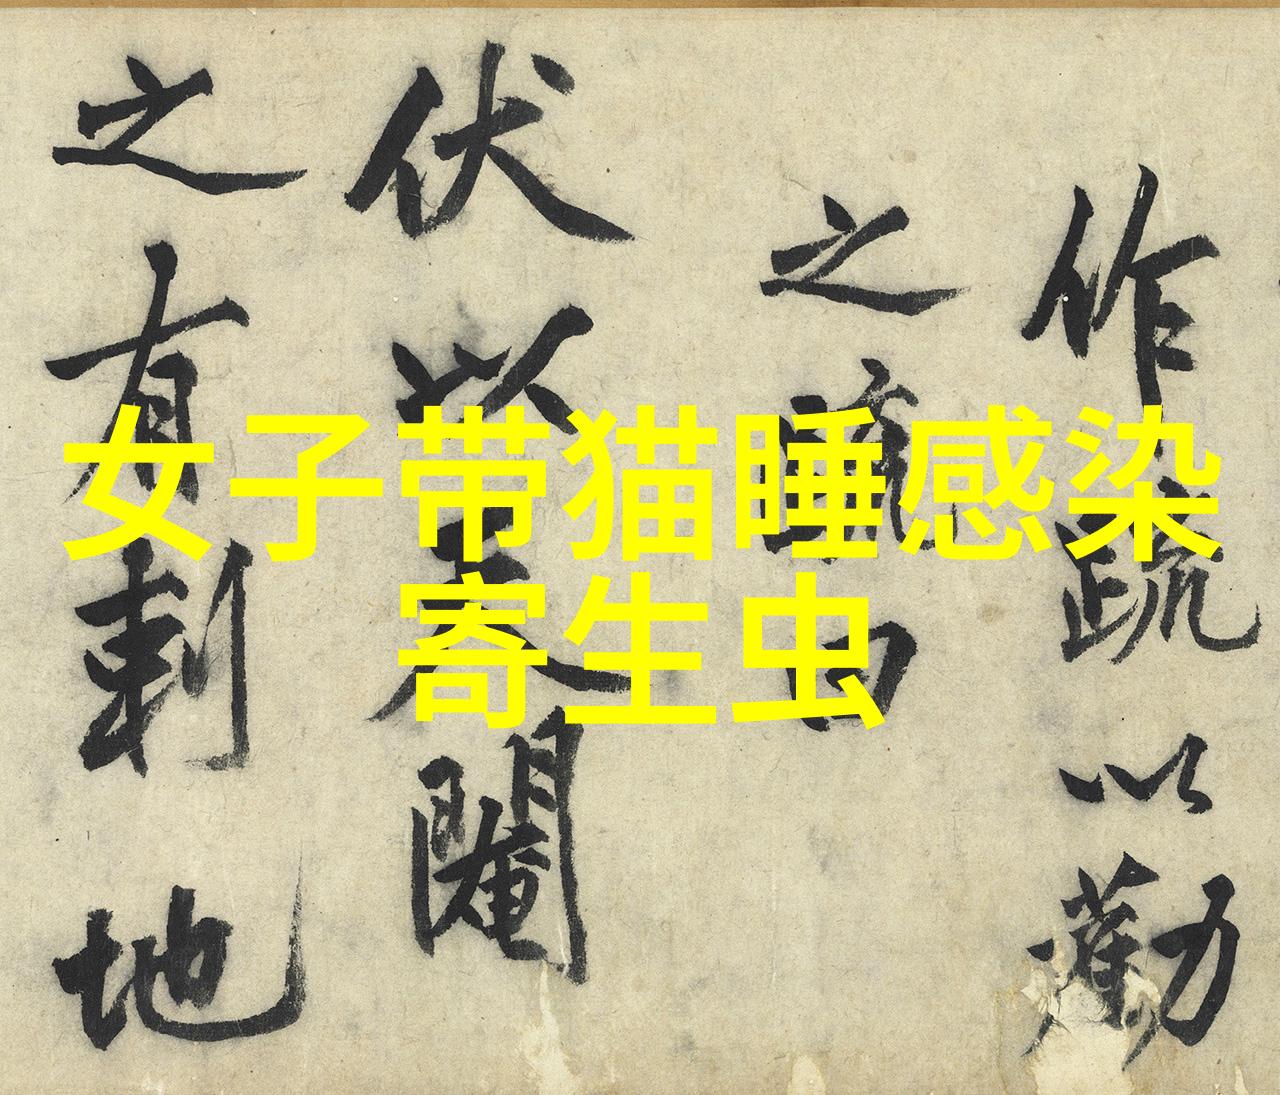 女子带猫睡感染
寄生虫
作疏以勸
之疏曰
伏以
之有刺地